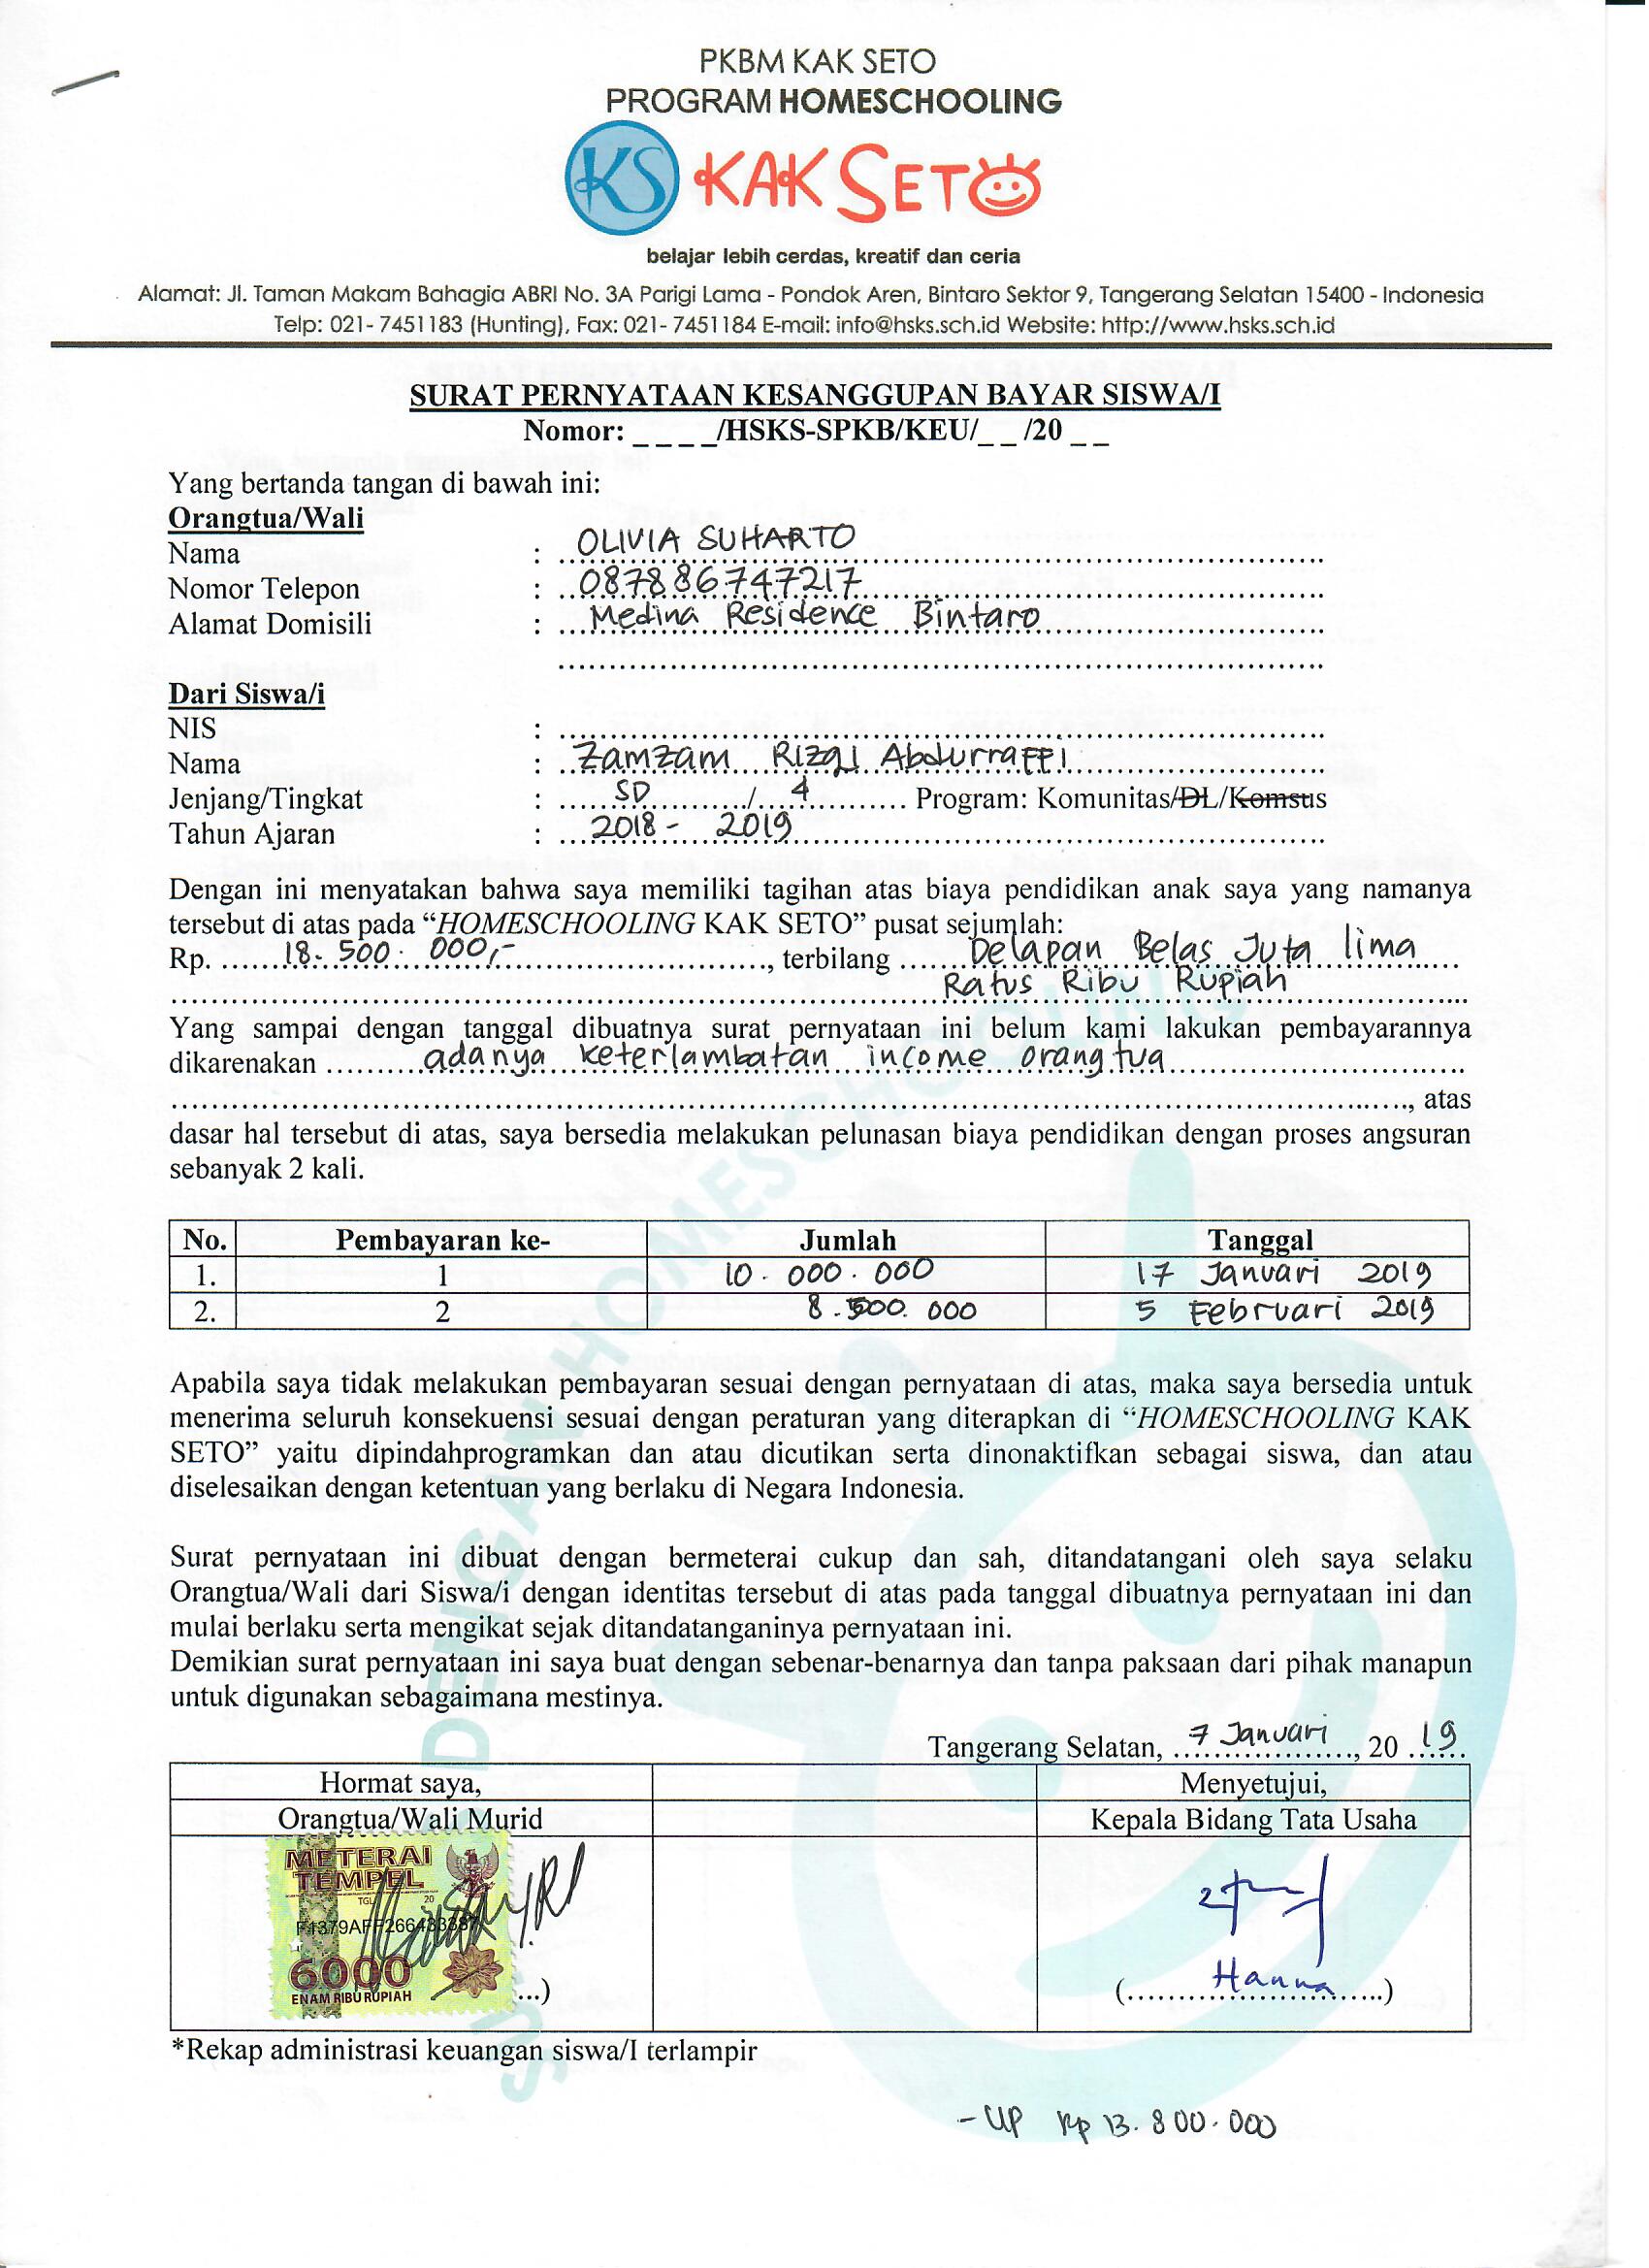 PKBM KAK SETO
PROGRAM HOMESCHOOLING
KS KAK SETO
belajar lebih cerdas, kreatif dan ceria
Alamat: Jl. Taman Makam Bahagia ABRI No. 3A Parigi Lama - Pondok Aren, Bintaro Sektor 9, Tangerang Selatan 15400 - Indonesia
Telp: 021- 7451183 (Hunting), Fax: 021- 7451184 E-mail: info@hsks.sch.id Website: http://www.hsks.sch.id
SURAT PERNYATAAN KESANGGUPAN BAYAR SISWA/I
Nomor: _ _ _ _/HSKS-SPKB/KEU/_ _ /20 _ _
Yang bertanda tangan di bawah ini:
Orangtua/Wali
Nama : OLIVIA SUHARTO
Nomor Telepon : 087886747217
Alamat Domisili : Medina Residence Bintaro
Dari Siswa/i
NIS :
Nama : Zamzam Rizqi Abdurraffi
Jenjang/Tingkat : SD / 4 Program: Komunitas/DL/Komsus
Tahun Ajaran : 2018 - 2019
Dengan ini menyatakan bahwa saya memiliki tagihan atas biaya pendidikan anak saya yang namanya
tersebut di atas pada “HOMESCHOOLING KAK SETO” pusat sejumlah:
Rp. 18.500.000,- , terbilang Delapan Belas Juta lima
Ratus Ribu Rupiah
Yang sampai dengan tanggal dibuatnya surat pernyataan ini belum kami lakukan pembayarannya
dikarenakan adanya keterlambatan income orang tua
, atas
dasar hal tersebut di atas, saya bersedia melakukan pelunasan biaya pendidikan dengan proses angsuran
sebanyak 2 kali.
No. Pembayaran ke- Jumlah Tanggal
1. 1 10.000.000 17 Januari 2019
2. 2 8.500.000 5 Februari 2019
Apabila saya tidak melakukan pembayaran sesuai dengan pernyataan di atas, maka saya bersedia untuk
menerima seluruh konsekuensi sesuai dengan peraturan yang diterapkan di “HOMESCHOOLING KAK
SETO” yaitu dipindahprogramkan dan atau dicutikan serta dinonaktifkan sebagai siswa, dan atau
diselesaikan dengan ketentuan yang berlaku di Negara Indonesia.
Surat pernyataan ini dibuat dengan bermeterai cukup dan sah, ditandatangani oleh saya selaku
Orangtua/Wali dari Siswa/i dengan identitas tersebut di atas pada tanggal dibuatnya pernyataan ini dan
mulai berlaku serta mengikat sejak ditandatanganinya pernyataan ini.
Demikian surat pernyataan ini saya buat dengan sebenar-benarnya dan tanpa paksaan dari pihak manapun
untuk digunakan sebagaimana mestinya.
Tangerang Selatan, 7 Januari, 20 19
Hormat saya, Menyetujui,
Orangtua/Wali Murid Kepala Bidang Tata Usaha
METERAI
TEMPEL
TGL 20
6000
ENAM RIBU RUPIAH
(Hanna)
*Rekap administrasi keuangan siswa/I terlampir
- UP Rp 13.800.000
DENGAN HOMESCHOOLING